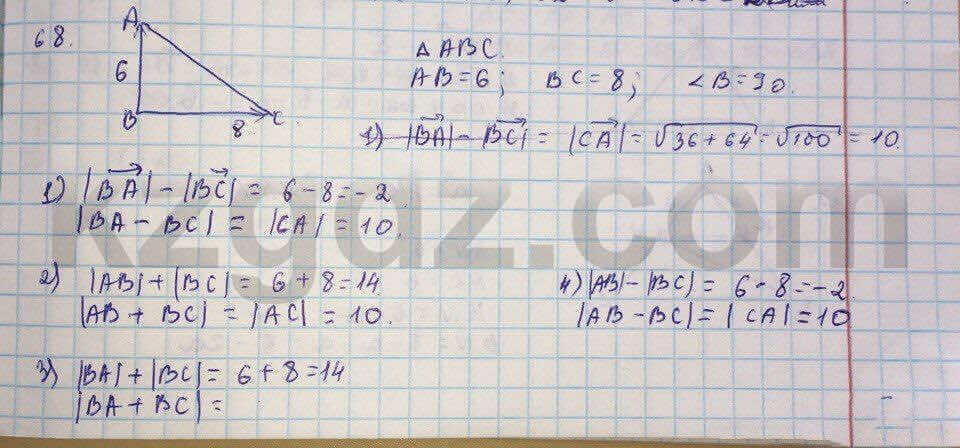 68.
A
6
B
8
C
△ABC.
AB=6; BC=8; ∠B=90.
1) |BA|-BC| = |CA| = √36+64 = √100 = 10.
1) |BA|-|BC| = 6-8=-2.
|BA-BC| = |CA| = 10.
2) |AB|+|BC| = 6+8=14
|AB+BC| = |AC| = 10.
4) |AB|-|BC| = 6-8=-2.
|AB-BC| = |CA| = 10
3) |BA|+|BC| = 6+8=14
|BA+BC| =
kzgdz.com